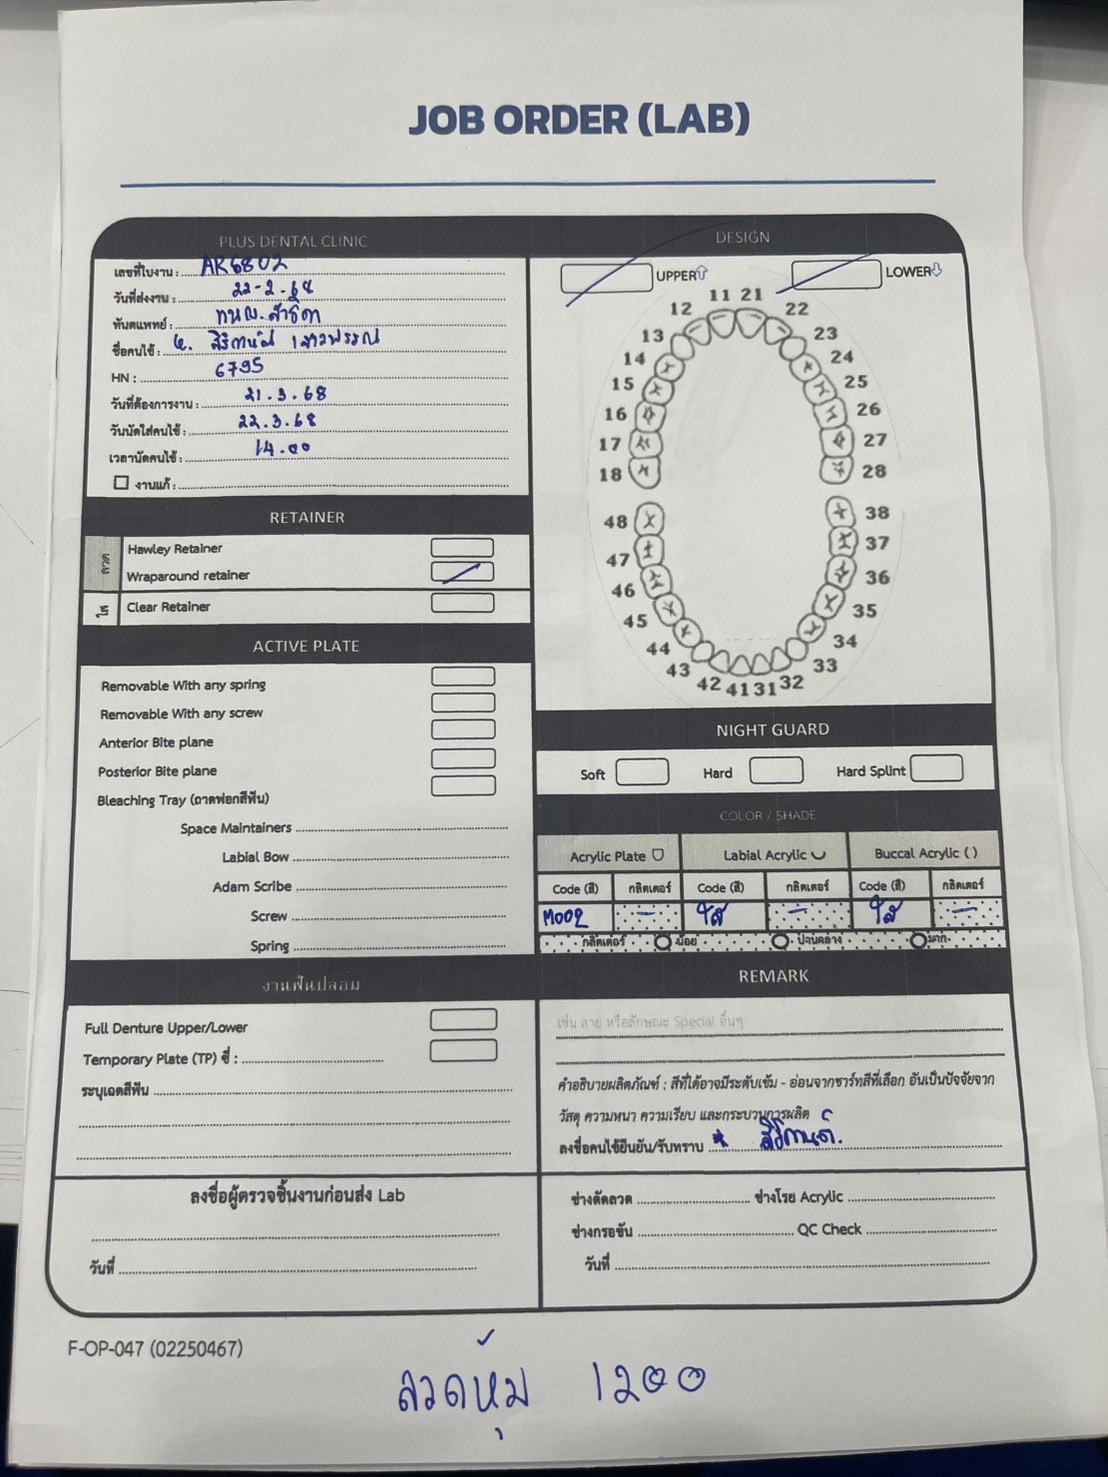 JOB ORDER (LAB)
PLUS DENTAL CLINIC
เลขที่ใบงาน : AR6802
วันที่ส่งงาน : 22-2-68
ทันตแพทย์ : ทพญ.สาธิตา
ชื่อคนไข้ : สิริกานต์
HN : 6795
วันที่ต้องการงาน : 21.3.68
วันนัดใส่คนไข้ : 22.3.68
เวลานัดคนไข้ : 14.00
งานแก้ :
RETAINER
ลวด
Hawley Retainer
Wraparound retainer
ใส
Clear Retainer
ACTIVE PLATE
Removable With any spring
Removable With any screw
Anterior Bite plane
Posterior Bite plane
Bleaching Tray (ถาดฟอกสีฟัน)
Space Maintainers
Labial Bow
Adam Scribe
Screw
Spring
งานฟันปลอม
Full Denture Upper/Lower
Temporary Plate (TP) ซี่ :
ระบุเฉดสีฟัน
ลงชื่อผู้ตรวจชิ้นงานก่อนส่ง Lab
วันที่
DESIGN
UPPER LOWER
11 21
12 22
13 23
14 24
15 25
16 26
17 27
18 28
48 38
47 37
46 36
45 35
44 34
43 33
42 41 31 32
NIGHT GUARD
Soft Hard Hard Splint
COLOR / SHADE
Acrylic Plate Labial Acrylic Buccal Acrylic ( )
Code (สี) กลิตเตอร์ Code (สี) กลิตเตอร์ Code (สี) กลิตเตอร์
M002 - ใส - ใส -
กลิตเตอร์ น้อย ปานกลาง มาก
REMARK
เช่น ลาย หรือลักษณะ Special อื่นๆ
คำอธิบายผลิตภัณฑ์ : สีที่ได้อาจมีระดับเข้ม - อ่อนจากชาร์ทสีที่เลือก อันเป็นปัจจัยจาก
วัสดุ ความหนา ความเรียบ และกระบวนการผลิต
ลงชื่อคนไข้ยืนยัน/รับทราบ * สิริกานต์.
ช่างดัดลวด ช่างโรย Acrylic
ช่างกรอขัน QC Check
วันที่
F-OP-047 (02250467)
ลวดหุ้ม 1200